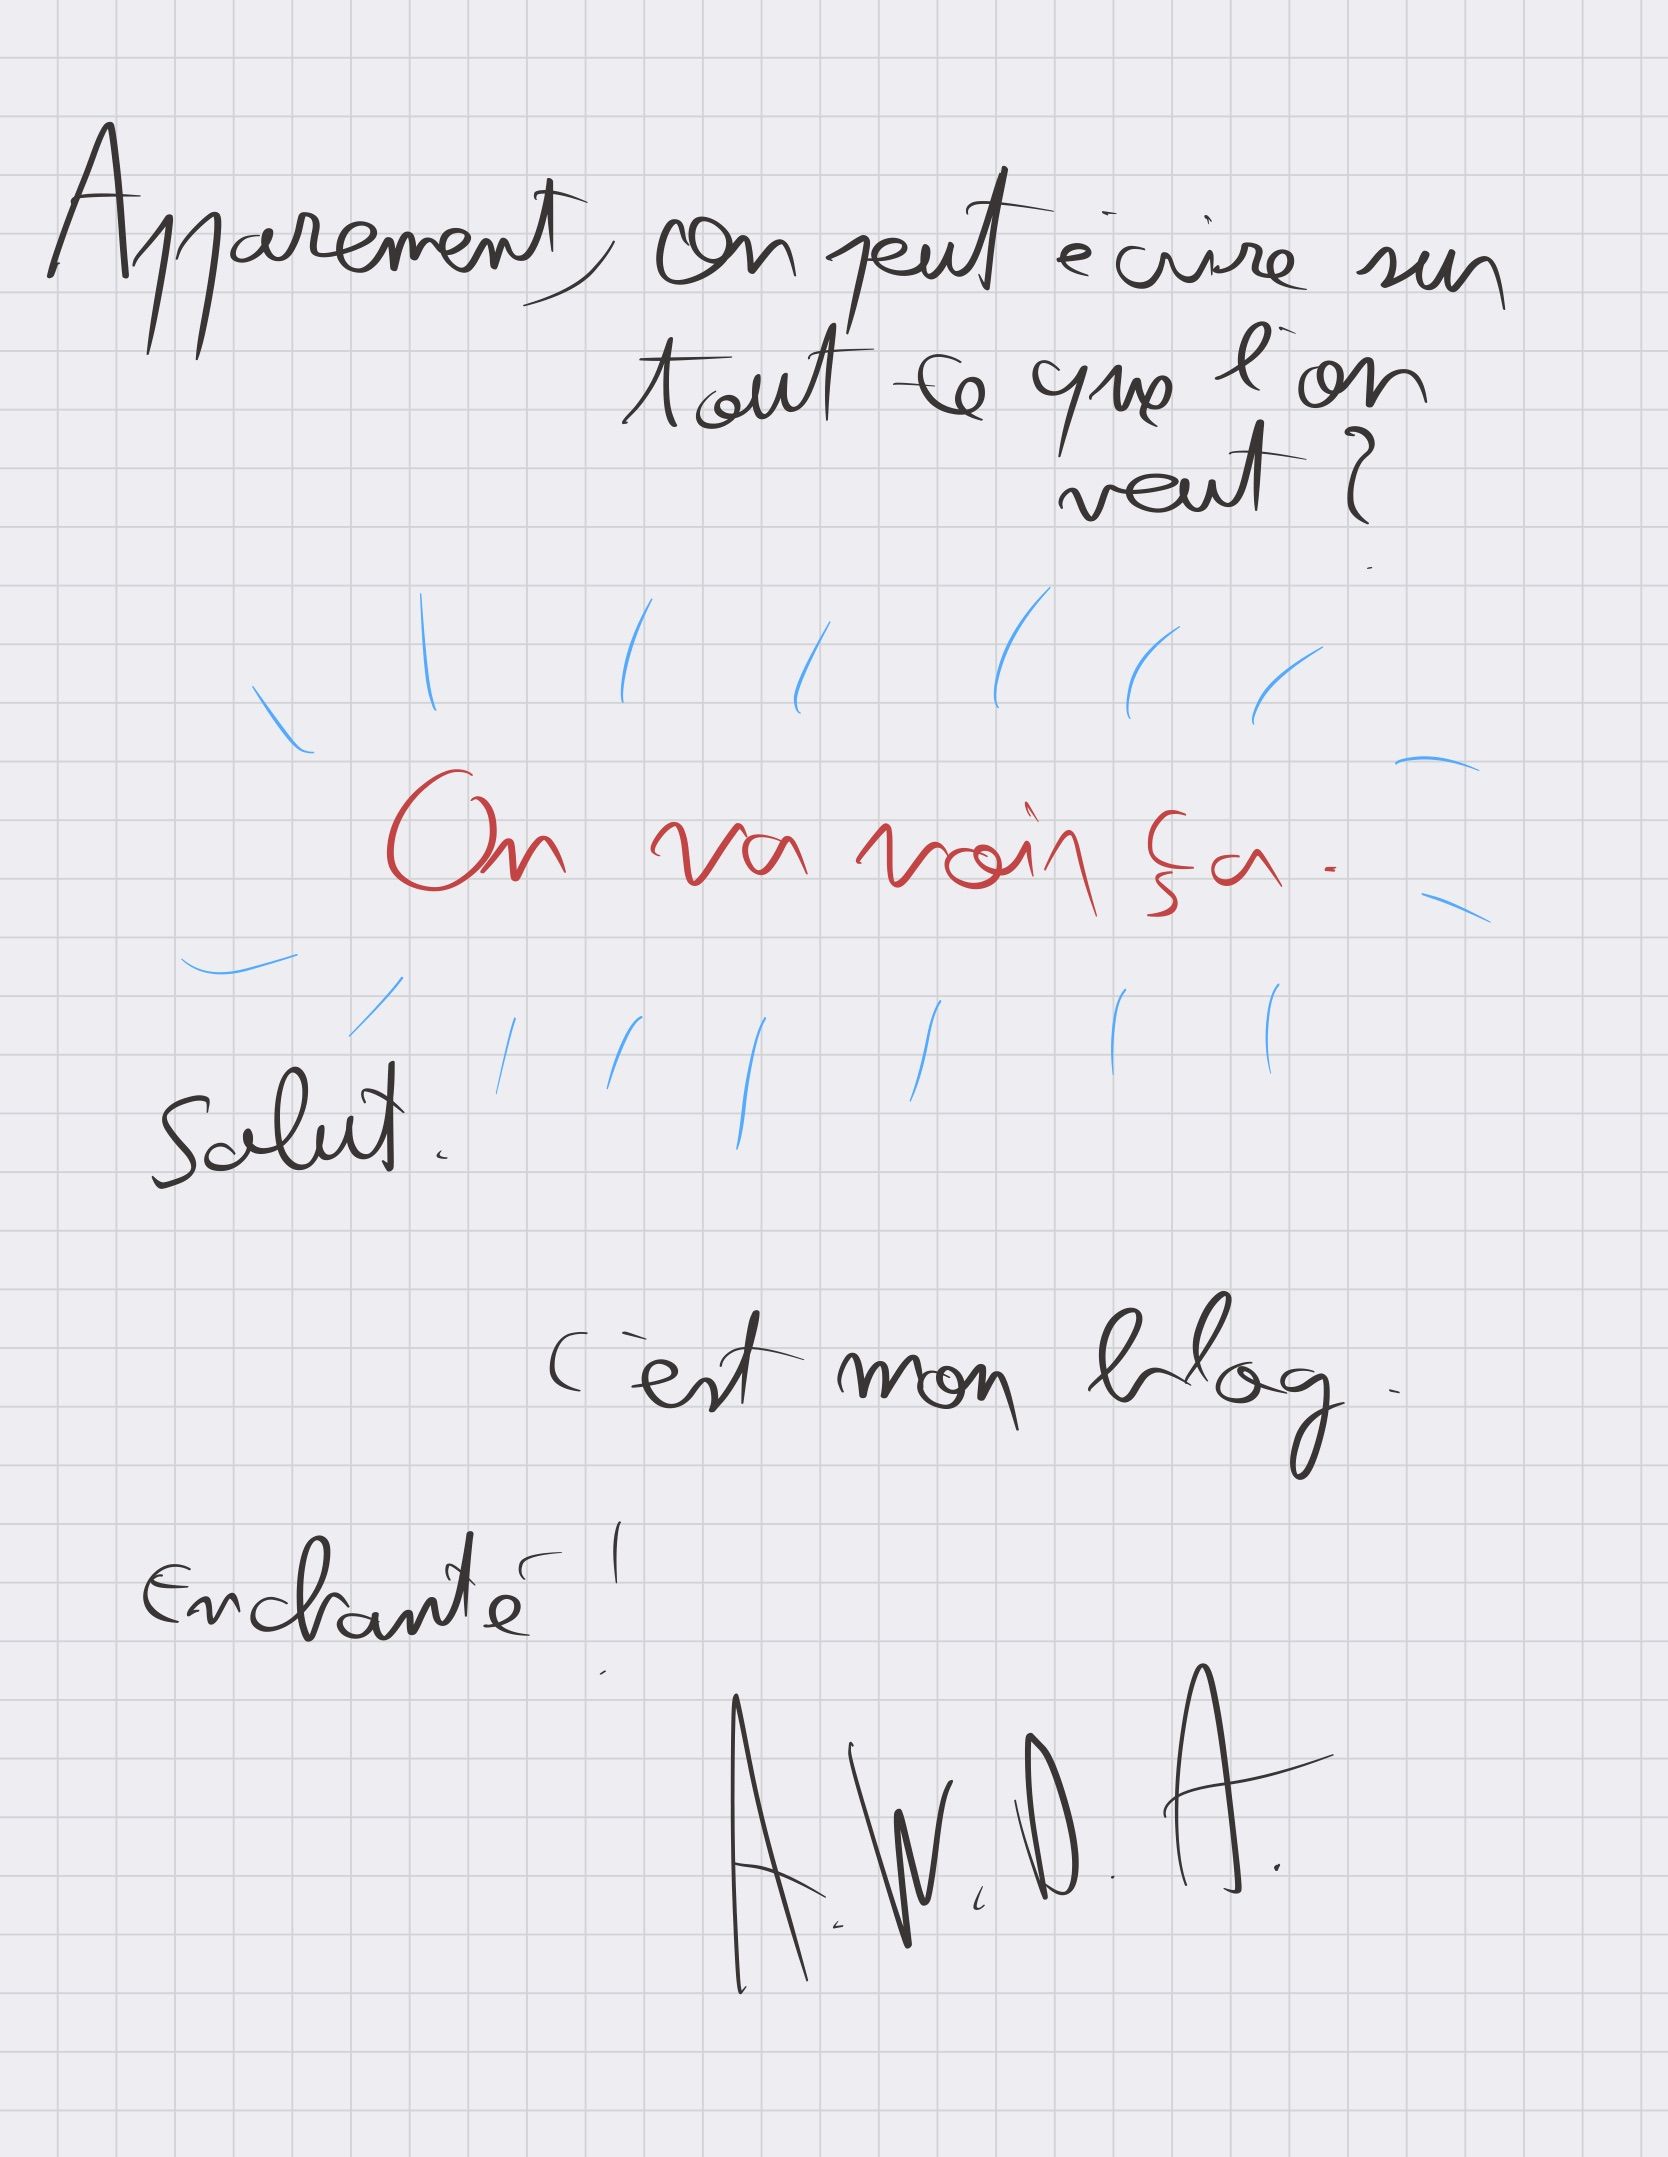 Apparement, on peut écrire sur
tout ce que l'on
veut ?
On va voir ça.
Salut.
C'est mon blog.
Enchanté !
A.W.D.A.